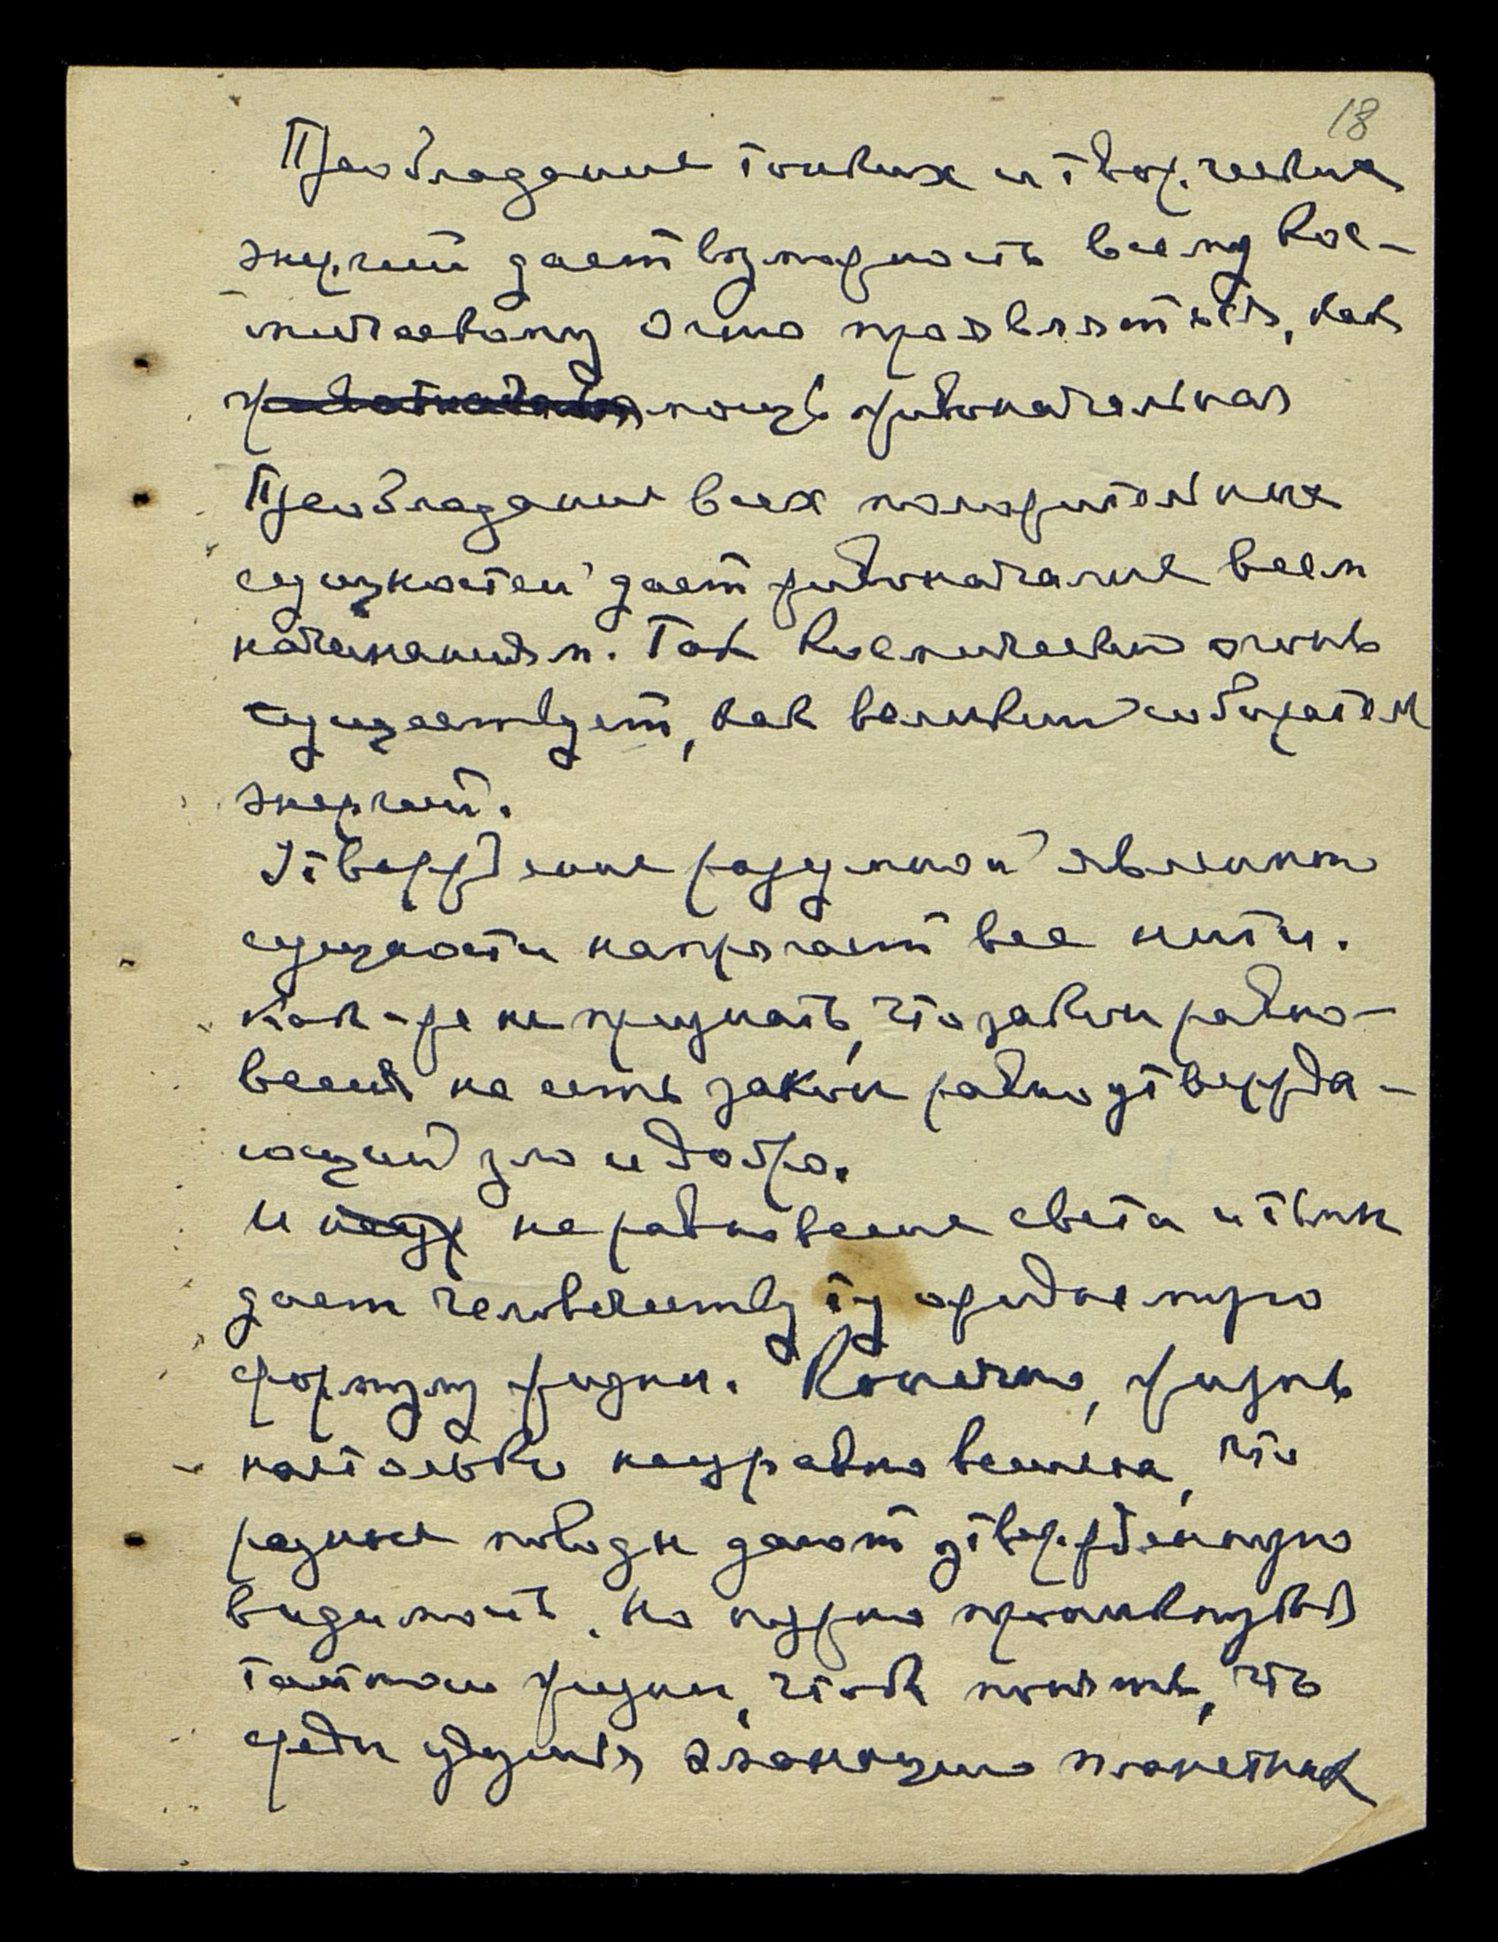 18
Преобладание тонких и творческих
энергий дает возможность всему кос-
мическому Огню проявляться, как
мощь живоначальная
Преобладание всех положительных
сущностей дает живоначалие всем
начинаниям. Так космический огонь
существует, как великий собиратель
энергий.
Утверждение разумной явленной
сущности напрягает все нити.
Как-же не признать, что закон равно-
весия не есть закон равно утвержда-
ющий зло и добро.
И не равновесие света и тьмы
дает человечеству ту
формулу жизни. Конечно, жизнь
настолько неуравновешена, что
разные поводы дают утвержденную
видимость. Но нужно проникнуться
тайною жизни, чтоб понять, что
среди удушья планетных